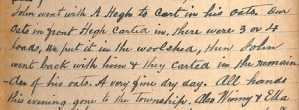 John went with A Hegh to cart in his oats. Our
oats in front Hegh Carted in, there were 3 or 4
loads, we put it in the woolshed, then John
went back with him & they carted in the remain-
der of his oats. A very fine dry day. All hands
this evening gone to the township. Also Winny & Ella